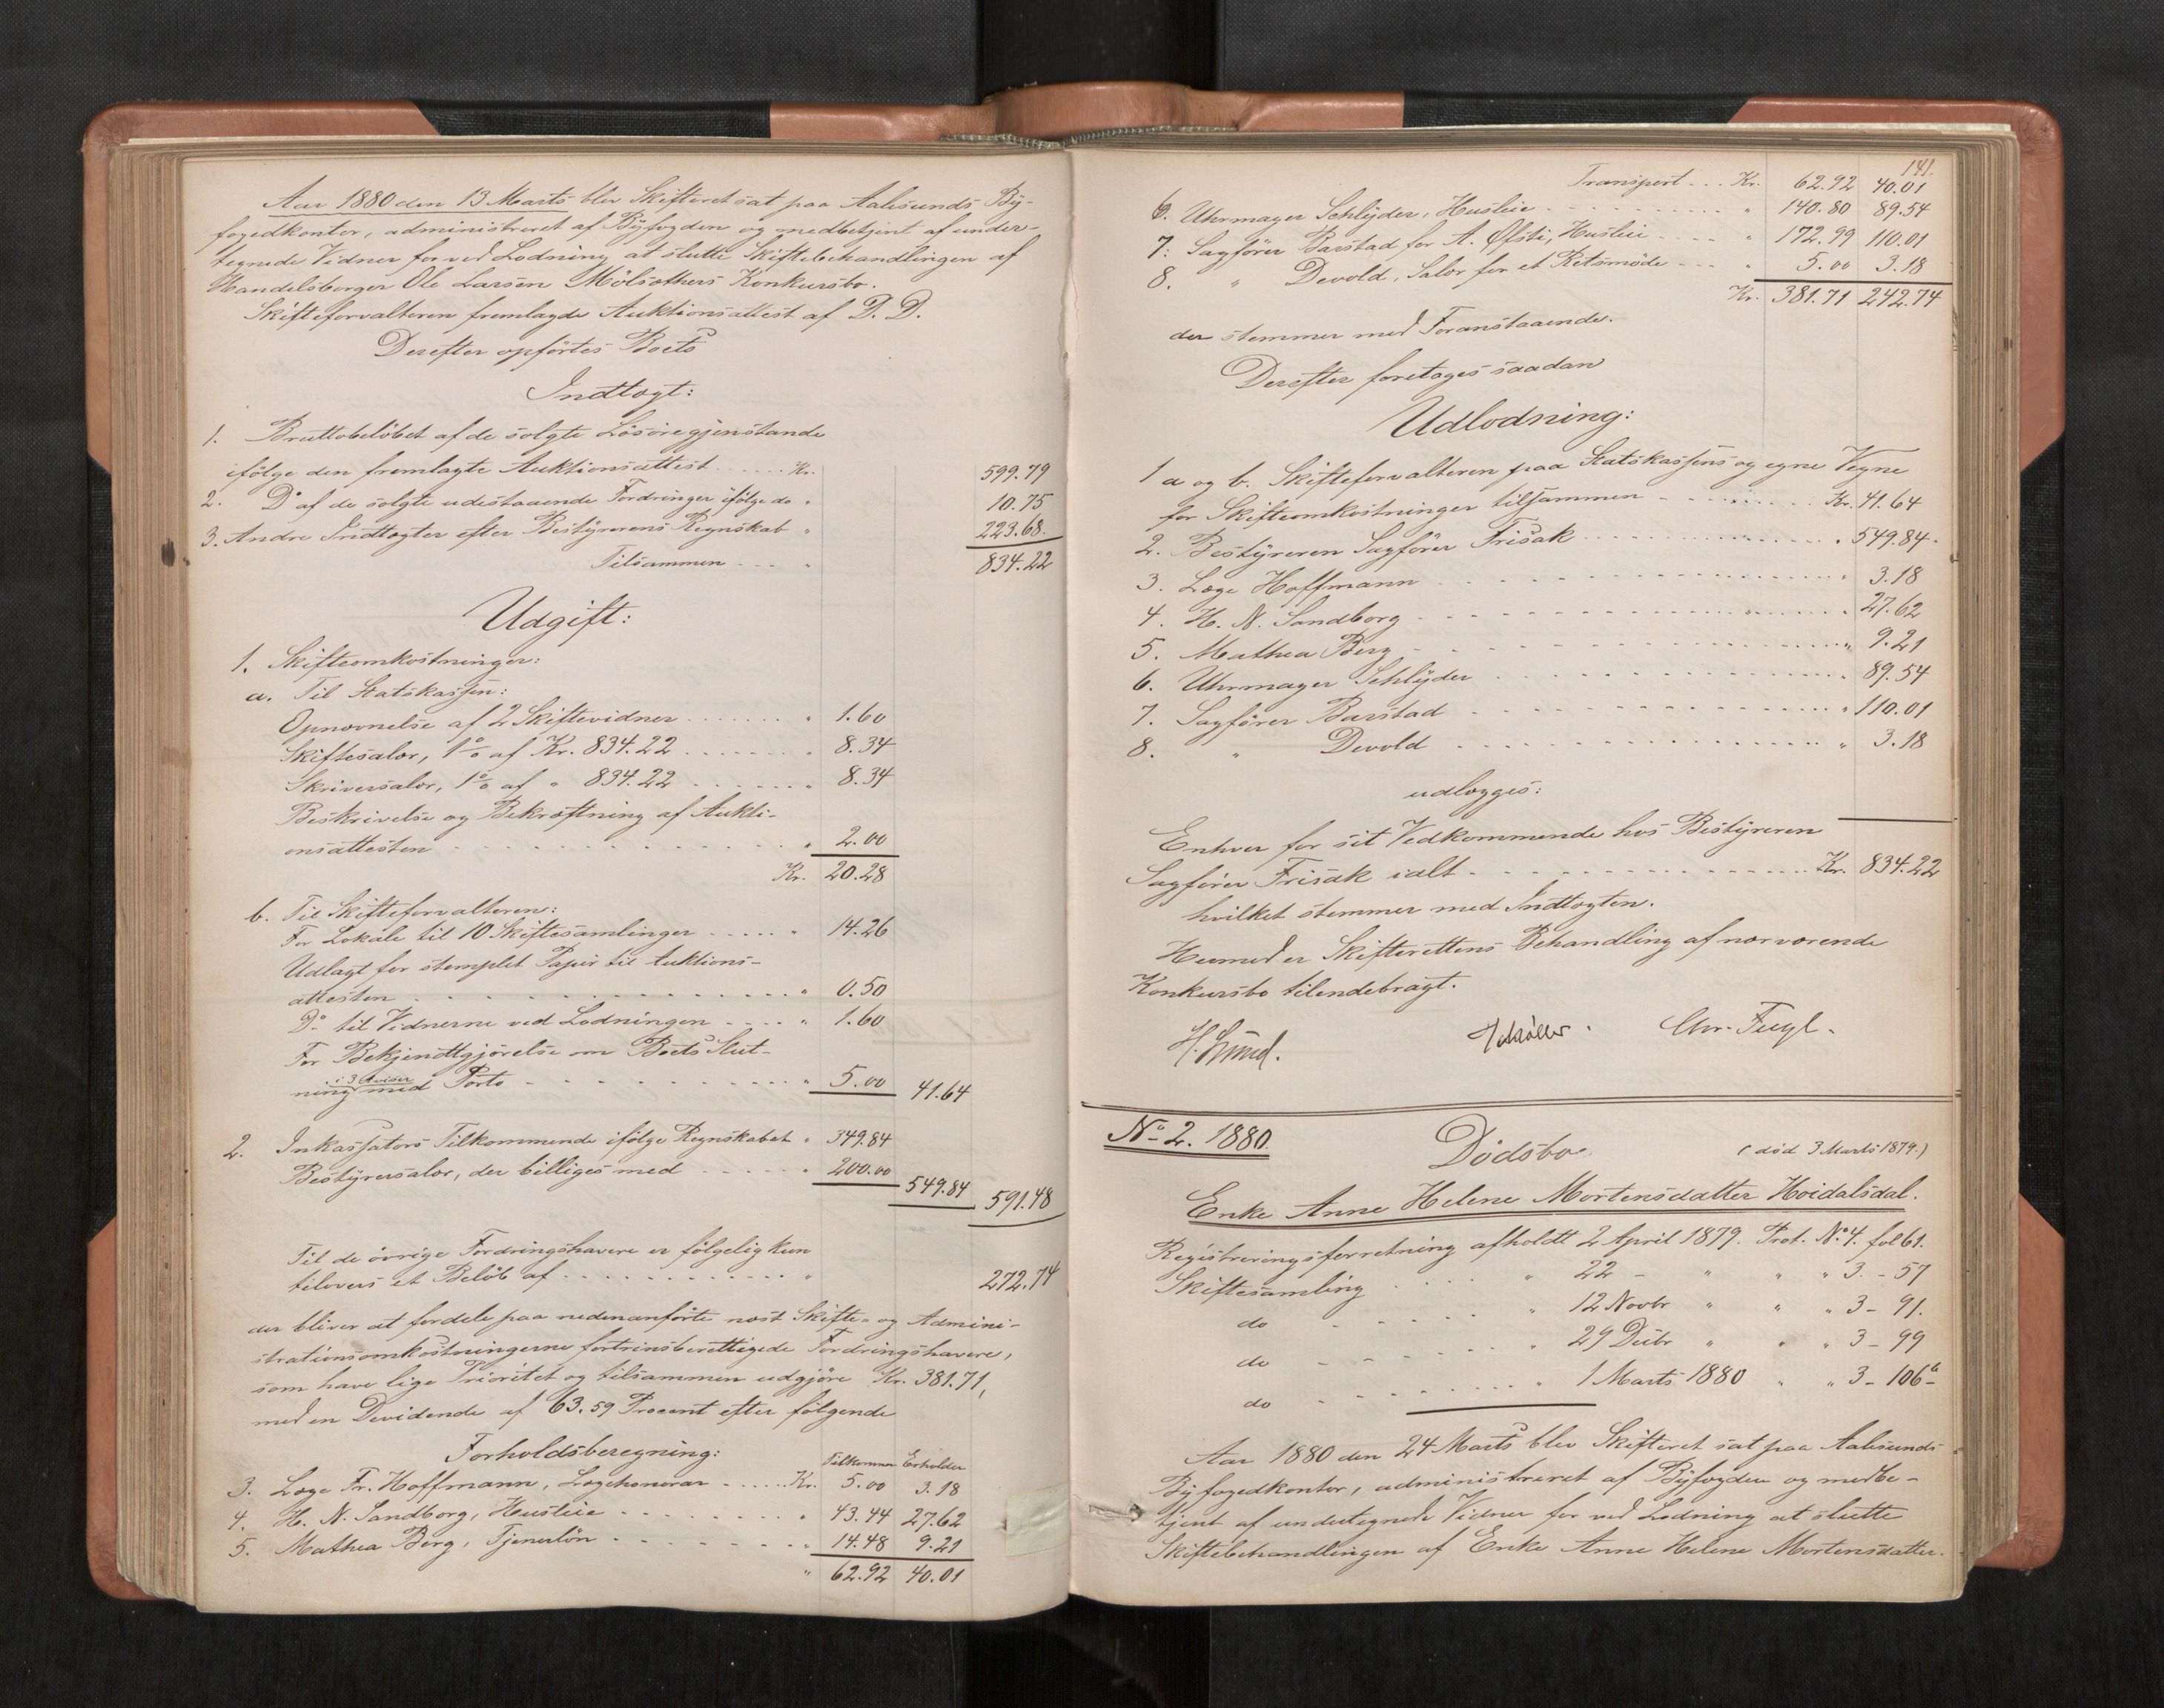 Aar 1880 den 13 Marts blev Skifteret sat paa Aalesunds By-
fogedkontor, administreret af Byfogden og medbetjent af under-
tegnede Vidner for ved Lodning at slutte Skiftebehandlingen af
Handelsborger Ole Larsen Mölsæthers Konkursbo.
Skifteforvalteren fremlagde Auktionsattest af D. D.
Derefter opförtes Boets
Indtægt:
1. Bruttobelöbet af de solgte Lösöregjenstande
ifölge den fremlagte Auktionsattest ..... Kr. 599.79
2. Do af de solgte udestaaende Fordringer ifölge do " 10.75
3. Andre Indtægter efter Bestyrerens Regnskab " 223.68.
Tilsammen ... " 834.22
Udgift:
1. Skifteomkostninger:
a. Til Statskassen:
Opnævnelse af 2 Skiftevidner ...... " 1.60
Skiftesalær, 1% af Kr. 834.22 ...... " 8.34
Skriversalær, 1% af " 834.22 ...... " 8.34
Beskrivelse og Bekræftning af Aukti-
onsattesten ...... " 2.00
Kr. 20.28
b. Til Skifteforvalteren:
For Lokale til 10 Skiftesamlinger ..... " 14.26
Udlagt for stemplet Papir til Auktions-
attesten ...... " 0.50
Do til Vidnerne ved Lodningen .... " 1.60
For Bekjendtgjörelse om Boets Slut-
ning i 3 Aviser med Porto ...... " 5.00 41.64
2. Inkassators Tilkommende ifölge Regnskabet " 349.84
Bestyrersalær, der billiges med ..... " 200.00
549.84 591.48
Til de övrige Fordringshavere er fölgelig kun
tilovers et Belöb af ........... " 272.74
der bliver at fordele paa nedenanförte næst Skifte- og Admini-
strationsomkostningerne fortrinsberettigede Fordringshavere,
som have lige Prioritet og tilsammen udgjöre Kr. 381.71,
med en Devidende af 63.59 Procent efter fölgende
Forholdsberegning:
Tilkommer Erholder
3. Læge Fr. Hoffmann, Lægehonorar ..... Kr. 5.00 3.18
4. H. N. Sandborg, Husleie ......... " 43.44 27.62
5. Mathea Berg, Tjenerlön ......... " 14.48 9.21
" 62.92 40.01
141.
Transport ... Kr. 62.92 40.01
6. Uhrmager Schlyder, Husleie ......... " 140.80 89.54
7. Sagförer Barstad for A. Øfsti, Husleie .... " 172.99 110.01
8. " Devold, Salær for et Retsmöde ... " 5.00 3.18
Kr. 381.71 242.74
der stemmer med Foranstaaende.
Derefter foretages saadan
Udlodning:
1 a og b. Skifteforvalteren paa Statskassens og egne Vegne
for Skifteomkostninger tilsammen ........ Kr. 41.64
2. Bestyreren Sagförer Frisak ........ " 549.84.
3. Læge Hoffmann ........ " 3.18
4. H. N. Sandborg ........ " 27.62
5. Mathea Berg ........ " 9.21
6. Uhrmager Schlyder ........ " 89.54
7. Sagförer Barstad ........ " 110.01
8. " Devold ........ " 3.18
udlægges:
Enhver for sit Vedkommende hos Bestyreren
Sagförer Frisak ialt ........ Kr. 834.22
hvilket stemmer med Indtægten.
Hermed er Skifterettens Behandling af nærværende
Konkursbo tilendebragt.
Chr. Fugl.
No 2. 1880.
Dödsbo. (död 3 Marts 1879.)
Enke Anne Helene Mortensdatter Hoidalsdal.
Registreringsforretning afholdt 2 April 1879. Prot. No 4. fol 61.
Skiftesamling .... " 22 - " " " 3. - 57
do ...... " 12 Novbr " " " 3 - 91.
do ...... " 29 Decbr " " " 3 - 99
do ...... " 1 Marts 1880 " " 3 - 106b
Aar 1880 den 24 Marts blev Skifteret sat paa Aalesunds
Byfogedkontor, administreret af Byfogden og medbe-
tjent af undertegnede Vidner for ved Lodning at slutte
Skiftebehandlingen af Enke Anne Helene Mortensdatter.